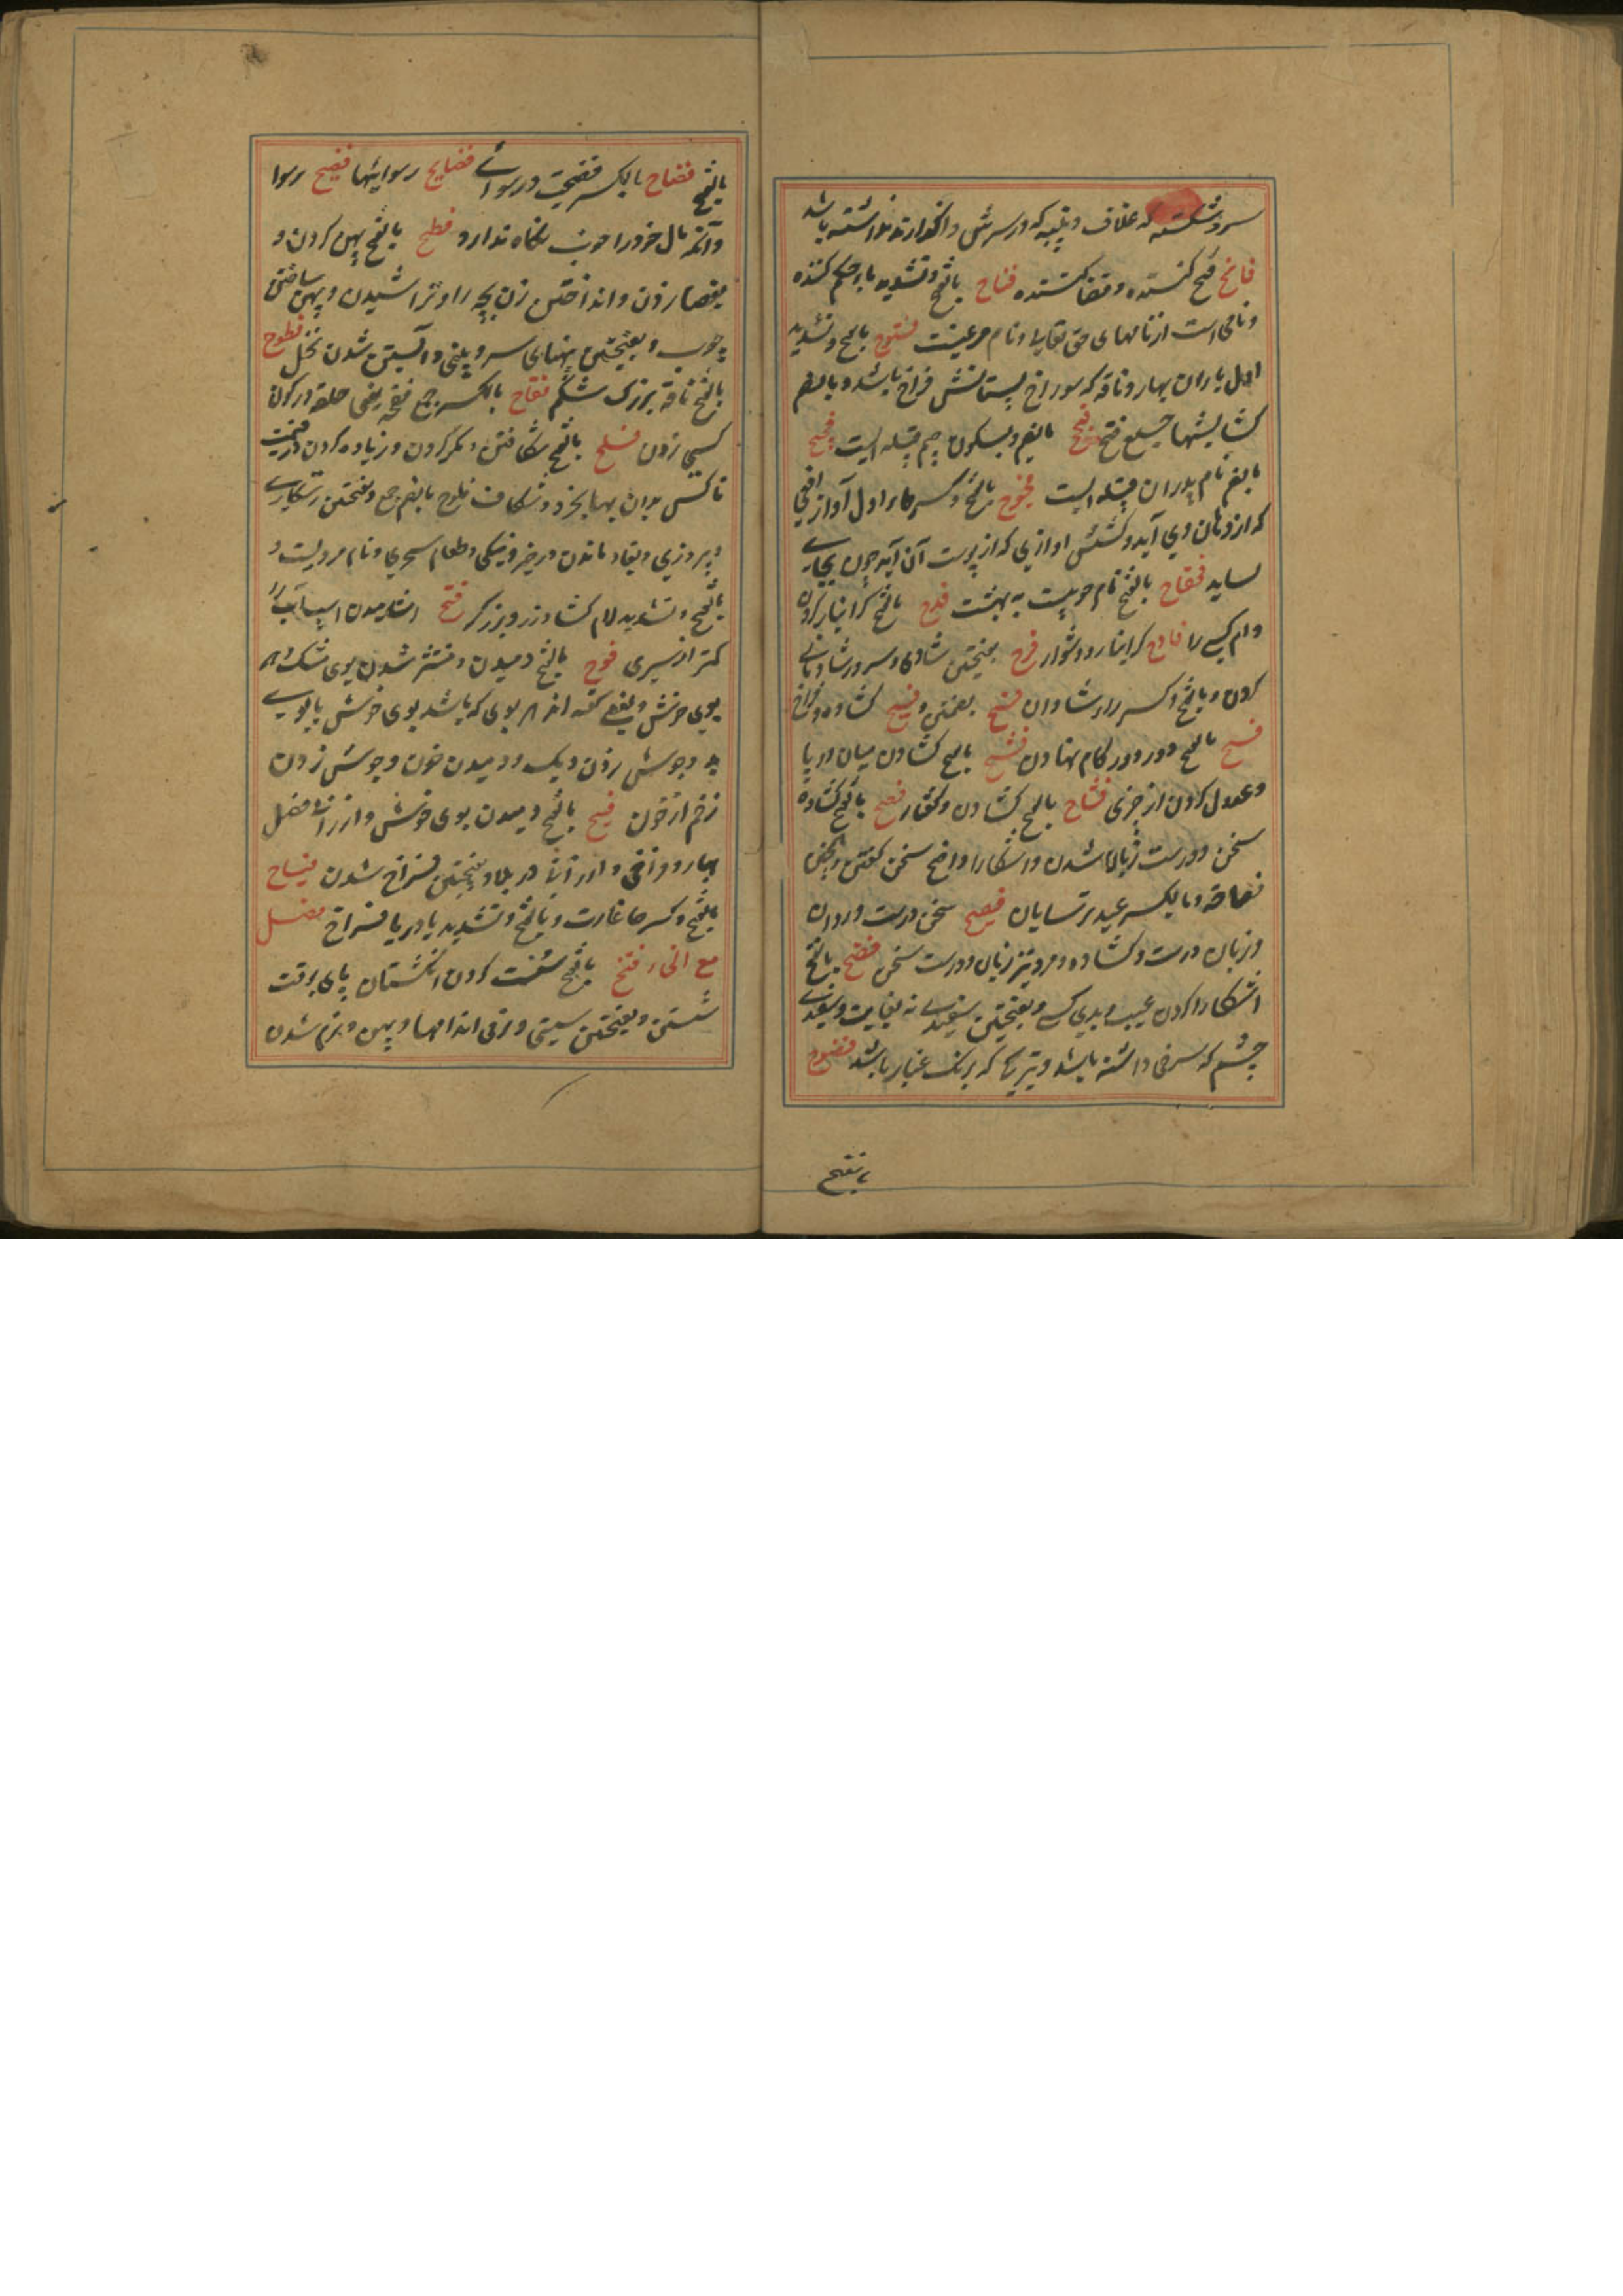 سر و شکسته که غلاف و پنبه که در سرش و انکه ارتد نداشته باشد
فاتح فتح کننده و قضا کننده فتاح بالفتح و تشدید تا حکم کننده
و نامی است از نامهای حق تعالی و نام مرغیست فتوح بالفتح و تشدید
اول باران بهار و ناقه که سوراخ پستانش فراخ باشد و بالضم
کشایشها جمع فتح فجح بالضم و بسکون جیم قبیله ایست فجح
بالضم نام پدران قبیله ایست فحوح بالفتح و کسر حاء اول آواز افعی
که از دهان وی آید و کشش اوازی که از پوست آن آید چون بجای
بساید فحفاح بالفتح نام جویست به بهشت فدح بالفتح گرانبار کردن
وام کسی را فادح گرانبار و دشوار فرح بفتحتین شادی و سرور شادمانی
کردن و بالفتح و کسر راء شادان فسح بضمتین و فسیح کشاده و فراخ
فسح بالفتح دور دور گام نهادن فشح بالفتح کشادن میان دو پا
و عدول کردن از چیزی فشاح بالفتح کشادن و کفتار فصح بالفتح کشاده
سخن و درست زبان شدن و اشکارا و اضح سخن گفتن و بمعنی
فصاحة و بالکسر عید ترسایان فصیح سخن درست و روان
و زبان درست و کشاده و مرد تیز زبان و درست سخن فضح بالفتح
اشکارا کردن عیب و بدی کسی و بفتحتین سفیدی نه بغایت و سفیدی
چشم که سرخی داشته باشد و تیرگی که برنگ غبار باشد فضوح
بالفتح
بالفتح فضاح بالکسر فضیحت و رسوائی فضایح رسوایئها فضیح رسوا
و آنکه مال خود را خوب نگاه ندارد فطح بالفتح پهن کردن و
بعصا زدن و انداختن زن بچه را و تراشیدن و پهن ساختن
چوب و بفتحتین پهنای سر و بینی و آبستن شدن نخل فطوح
بالفتح ناقه بزرک شکم فقاح بالکسر جمع فقحه یعنی حلقه در کون
کسی زدن فلح بالفتح شکافتن و مکر کردن و زیاده کردن در قیمت
تا کسی بدان بها بخرد و شکاف فلوح بالضم جمع و بفتحتین رستکاری
و پیروزی و بقاء ماندن در خیر و نیکی و طعام سحری و نام مردیست و
بالفتح و تشدید لام کشاورز و برزگر فنح اشامیدن اسپ آب را
کمتر از سیری فوح بالفتح دمیدن و منتشر شدن بوی مشک و هر
بوی خوش و بعضی گفته اند هر بوی که باشد بوی خوش یا بوی
بد و جوش زدن دیک و دمیدن خون و جوش زدن
زخم از خون فیح بالفتح دمیدن بوی خوش و ارزانی فصل
بهار و فراخی و ارزانی در بلاد و بفتحتین فراخ شدن فیاح
بالفتح و کسر حا غارت و بالفتح و تشدید یا دریا فراخ فصل
مع الخاء فتخ بالفتح سست کردن انگشتان پای بوقت
شستن و بفتحتین سستی و نرمی اندامها و پهن و نرم شدن